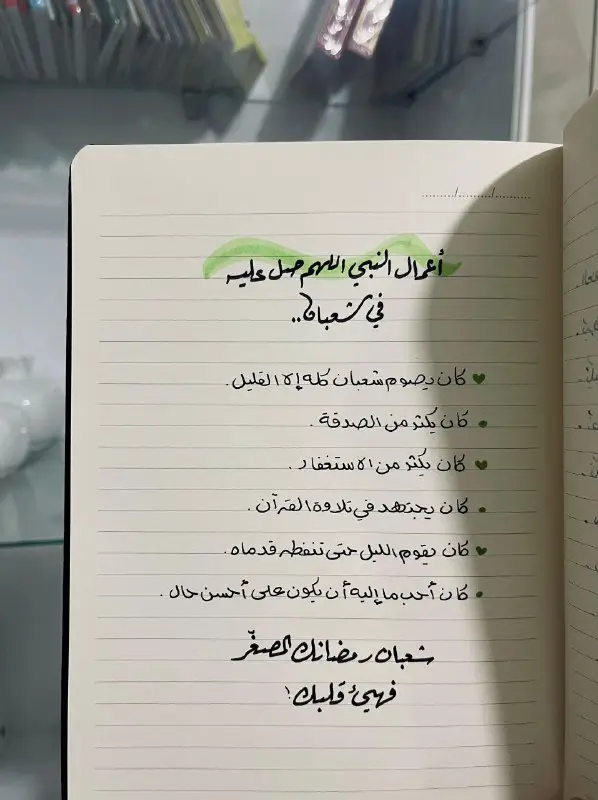 أعمال النبي اللهم صل عليه
في شعبان..
كان يصوم شعبان كله إلا القليل.
كان يكثر من الصدقة.
كان يكثر من الاستغفار.
كان يجتهد في تلاوة القرآن.
كان يقوم الليل حتى تنفطه قدماه.
كان أحب ما إليه أن يكون على أحسن حال.
شعبان رمضانك المصغّر
فهيئ قلبك!